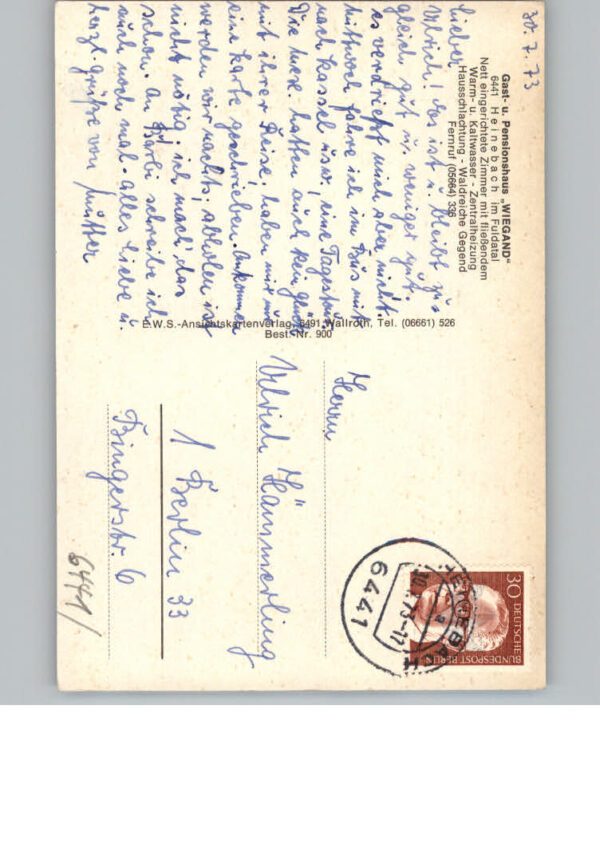 30.7.73
Gast- u. Pensionshaus „WIEGAND"
6441 Heinebach im Fuldatal
Nett eingerichtete Zimmer mit fließendem
Warm- u. Kaltwasser - Zentralheizung
Hausschlachtung - Waldreiche Gegend
Fernruf (05664) 336
Lieber
Ulrich! Es ist u. bleibt
gleich gut u. weniger gut.
es verdrießt mich aber nicht.
Mittwoch fahre ich im Bus mit
nach Kassel usw, eine Tagestour
Die hatten auch kein Glück
mit ihrer Reise, haben mir
eine Karte geschrieben. Ankommen
werden wir nachts, abholen ist
nicht nötig, ich mach das
schon. An schreibe ich
auch noch mal. alles Liebe u.
herzl. Grüße von Mutter
E.W.S.-Ansichtskartenverlag, 6491 Wallroth, Tel. (06661) 526
Best. Nr. 900
Herrn
Ulrich Hämmerling
1 Berlin 33
Bingerstr. 6
6441/
30 DEUTSCHE
BUNDESPOST BERLIN
HEINEBACH
a
30.7.73-17
6441